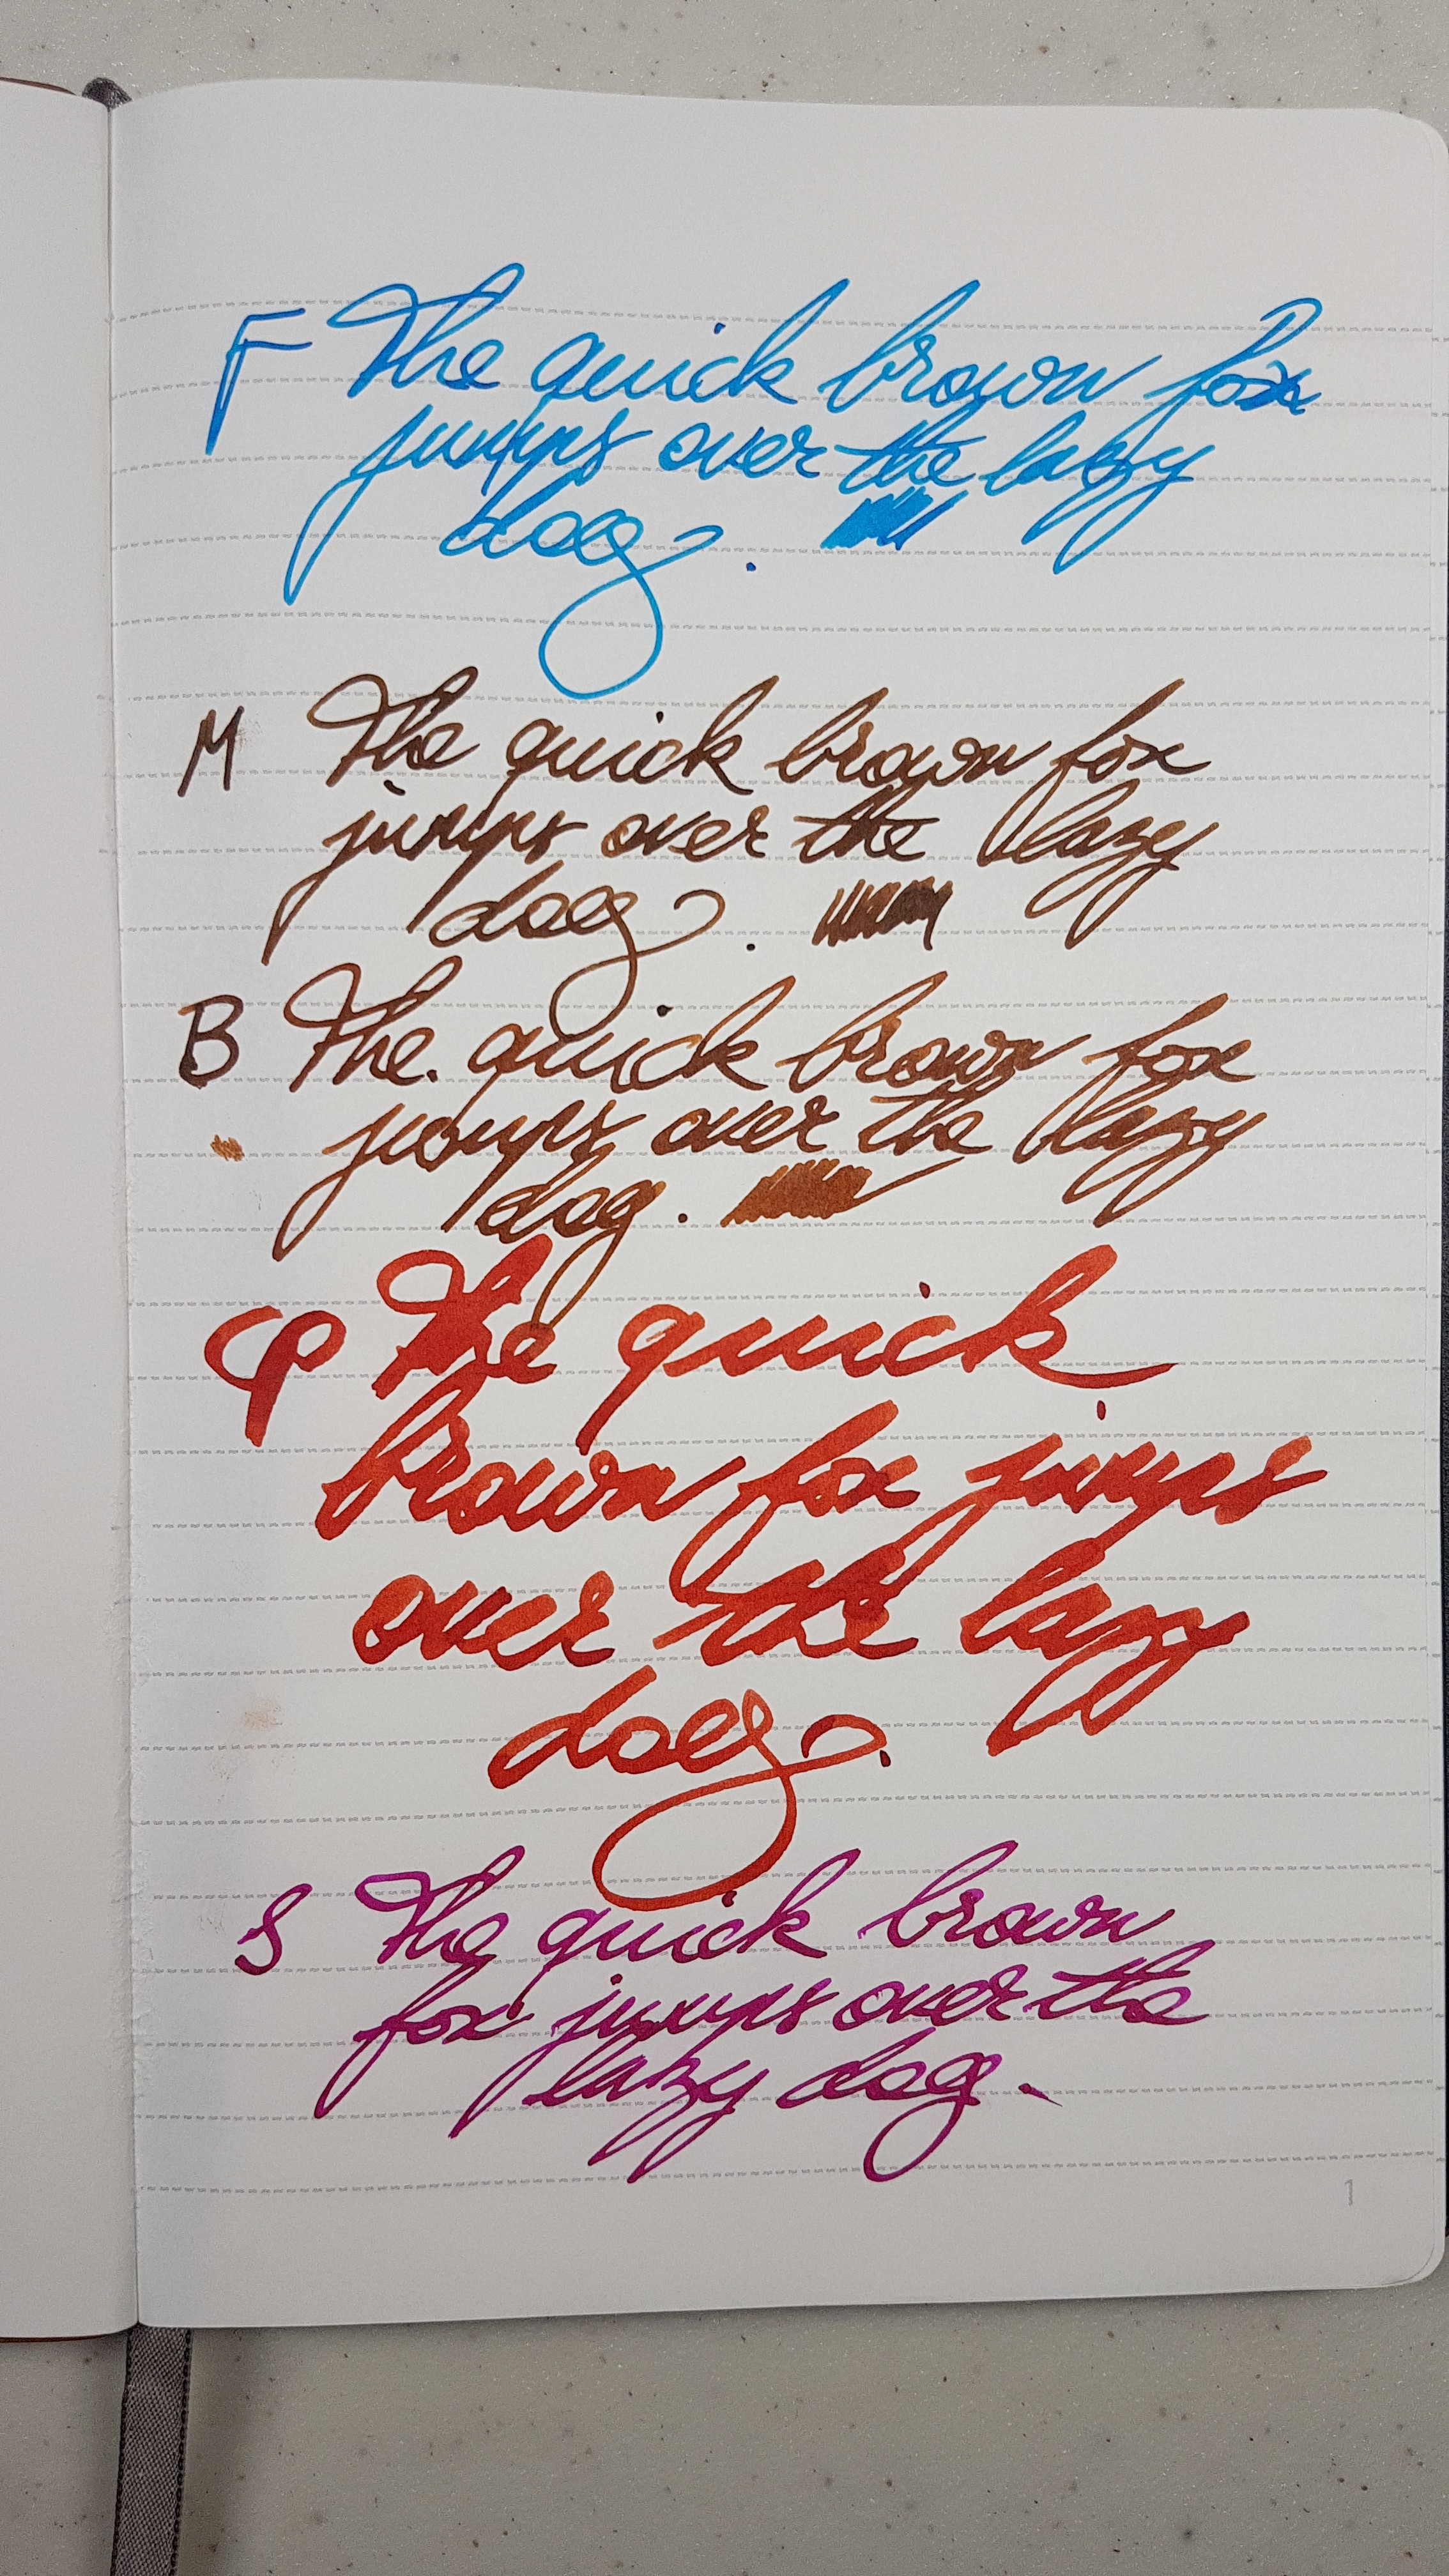 F The quick brown fox
jumps over the lazy
dog.
M The quick brown fox
jumps over the lazy
dog.
B The. quick brown fox
jumps over the lazy
dog.
φ The quick
brown fox jumps
over the lazy
dog.
S The quick brown
fox jumps over the
lazy dog.
1